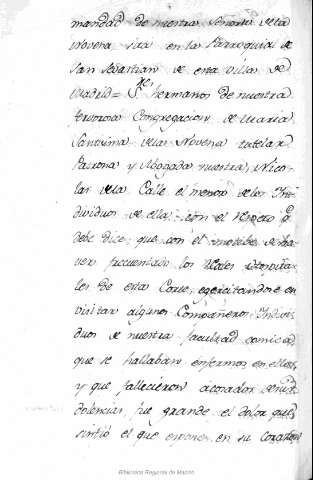 mandad de nuestra Señora de la
Novena sita en la Parroquia de
San Sebastian de esta Villa de
Madrid = S.res hermanos de nuestra
fervorosa Congregacion de Maria
Santisima de la Novena tutelar
Patrona y Abogada nuestra, Nico-
las de la Calle el menor de los In-
dividuos de ella, con el respeto q.e
debe dice: que con el motivo de ha-
ver frecuentado los Reales Hospita-
les de esta Corte, egercitandose en
visitar algunos Compañeros Indivi-
duos de nuestra facultad comica,
que se hallaban enfermos en ellos,
y que fallecieron acosados de sus
dolencias, fue grande el dolor que
sintió el que expone, en su Corazon
Biblioteca Regional de Madrid